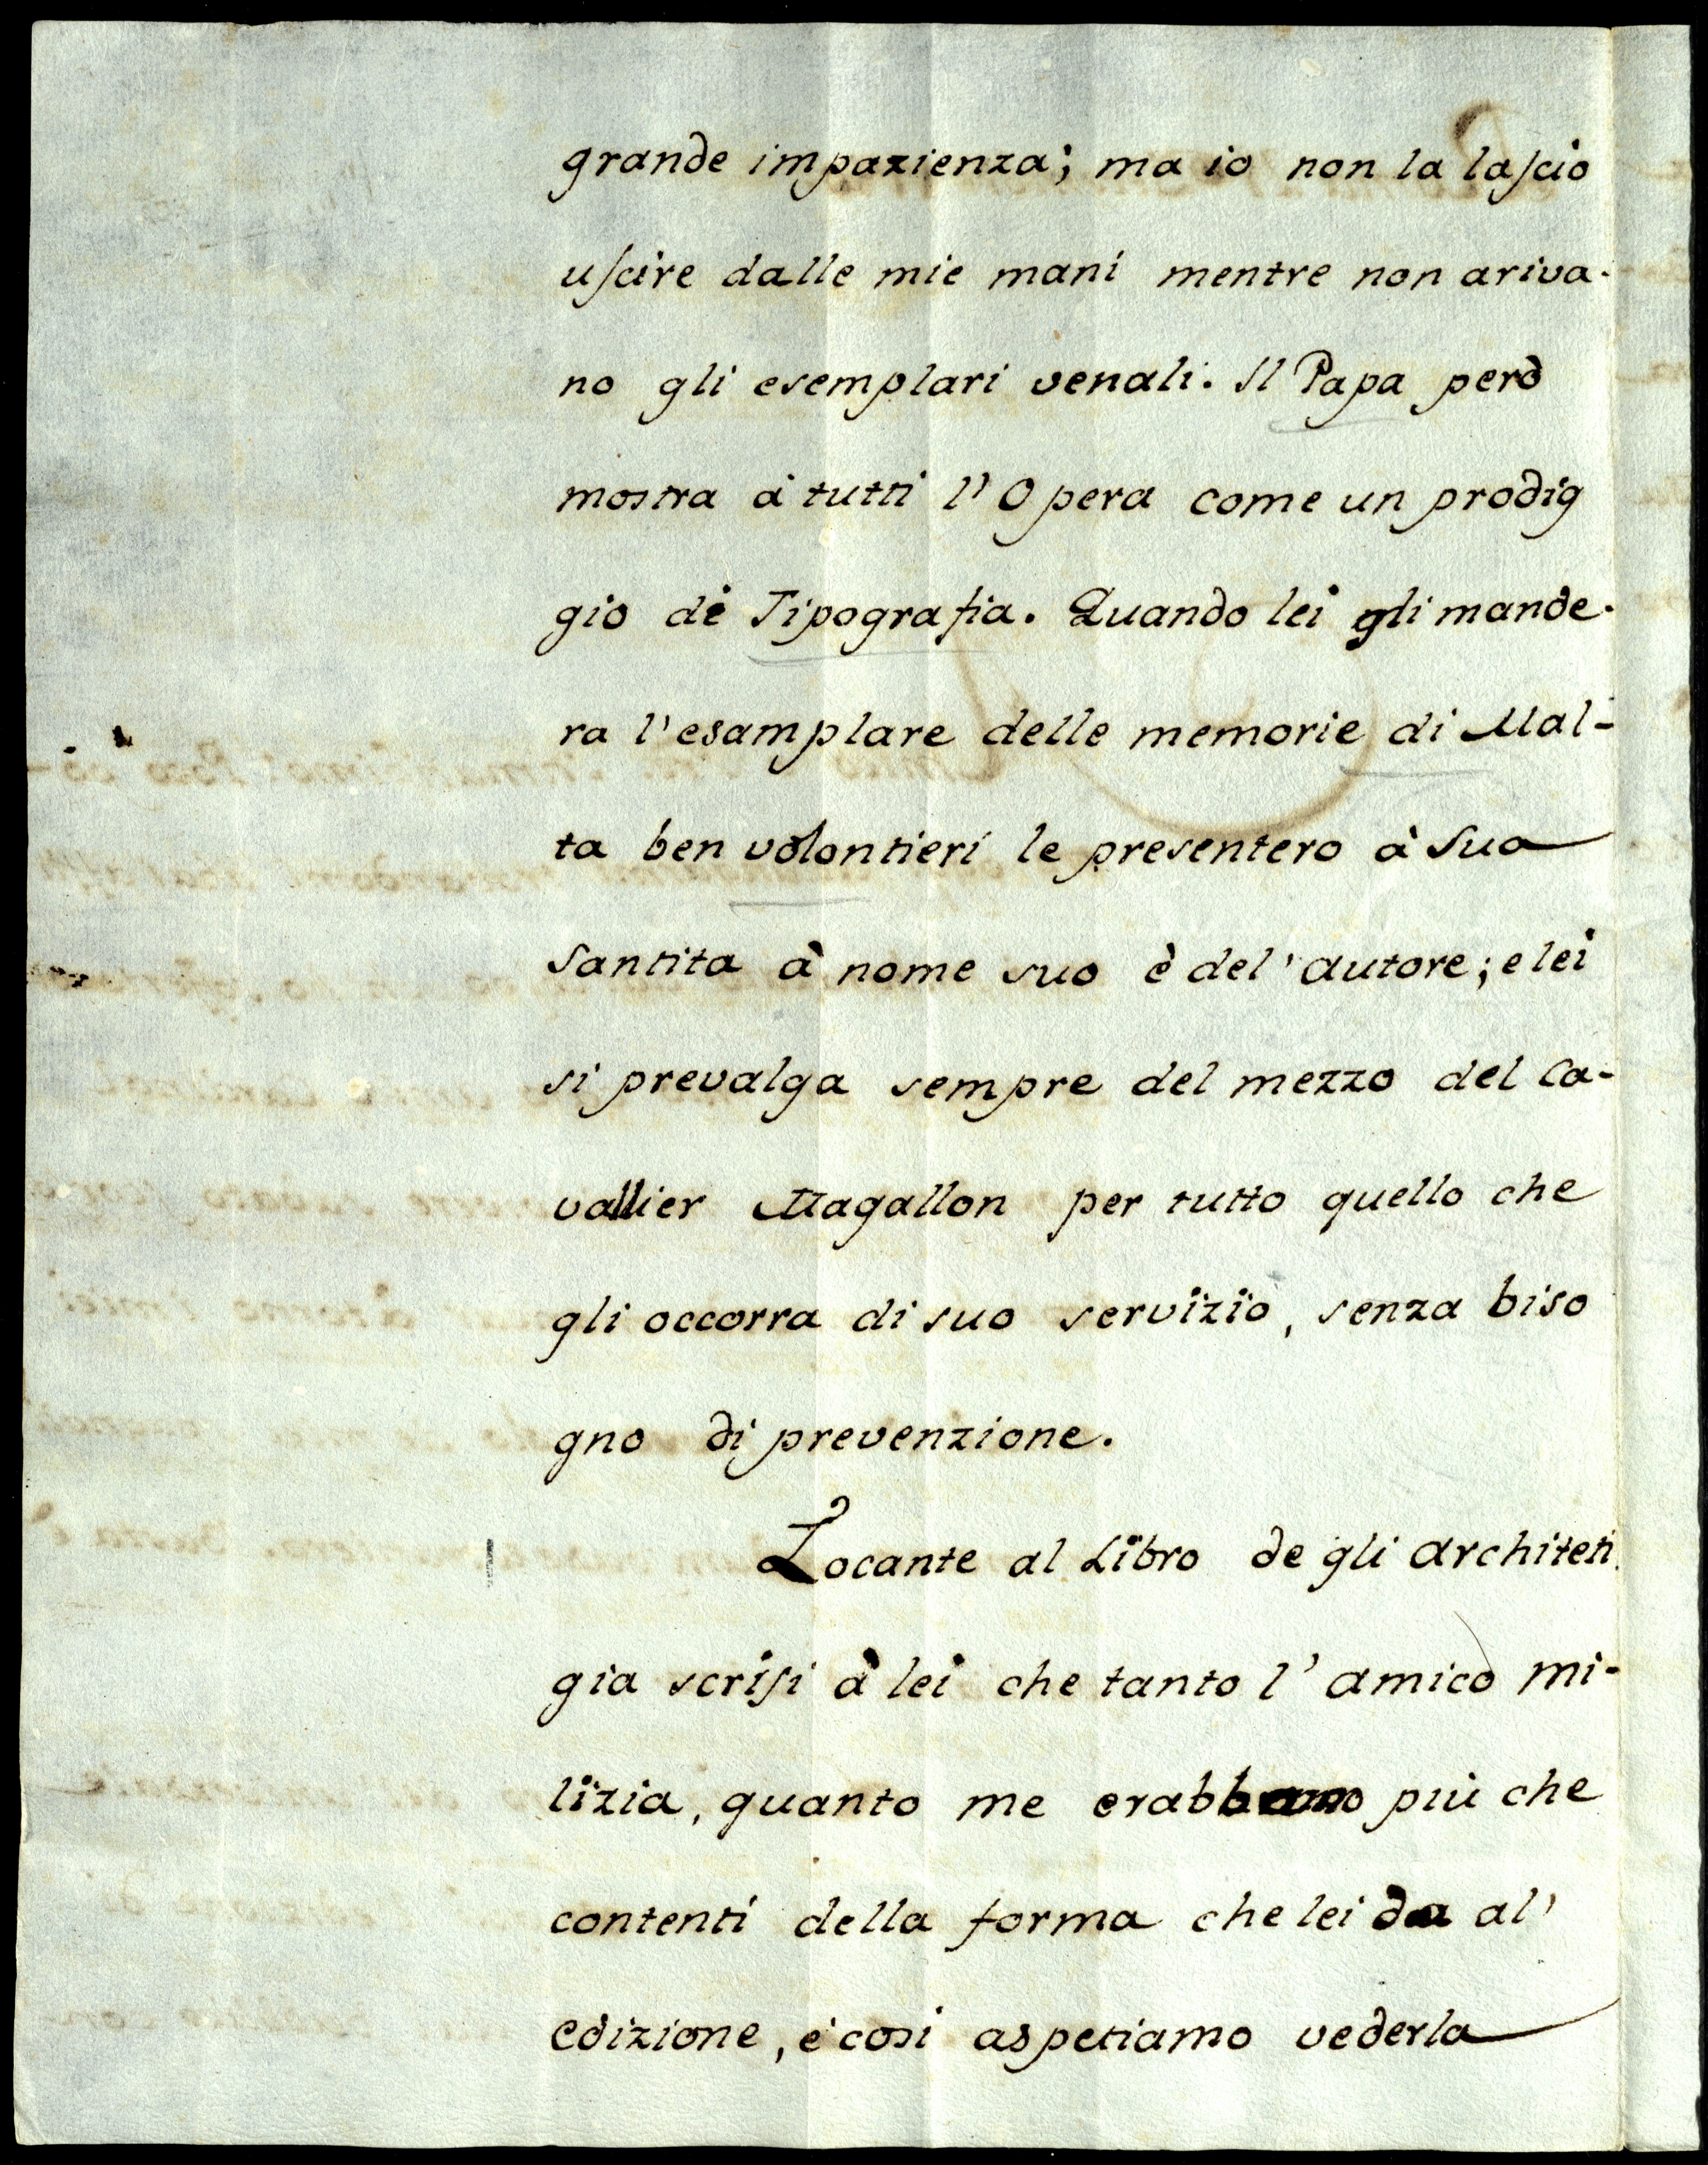 grande impazienza; ma io non la lascio
uscire dalle mie mani mentre non ariva-
no gli esemplari venali. Il Papa però
mostra à tutti l'Opera come un prodig
gio di Tipografia. Quando lei gli mande-
ra l'esamplare delle memorie di Mal-
ta ben volontieri le presentero à Sua
Santita à nome suo è del'autore; e lei
si prevalga sempre del mezzo del Ca-
vallier Magallon per tutto quello che
gli occorra di suo servizio, senza biso
gno di prevenzione.
Locante al Libro de gli architeti
gia scrisi à lei che tanto l'amico Mi-
lizia, quanto me più che
contenti della forma che lei da al'
edizione, e cosi aspetiamo vederla